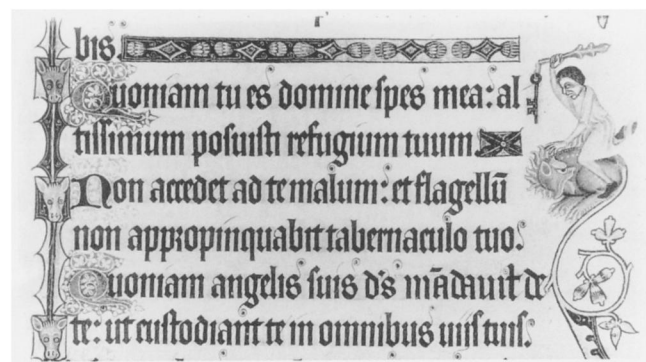 bis.
Quoniam tu es domine spes mea: al
tissimum posuisti refugium tuum.
Non accedet ad te malum: et flagellū
non appropinquabit tabernaculo tuo.
Quoniam angelis suis d's mādauit de
te: ut custodiant te in omnibus uiis tuis.